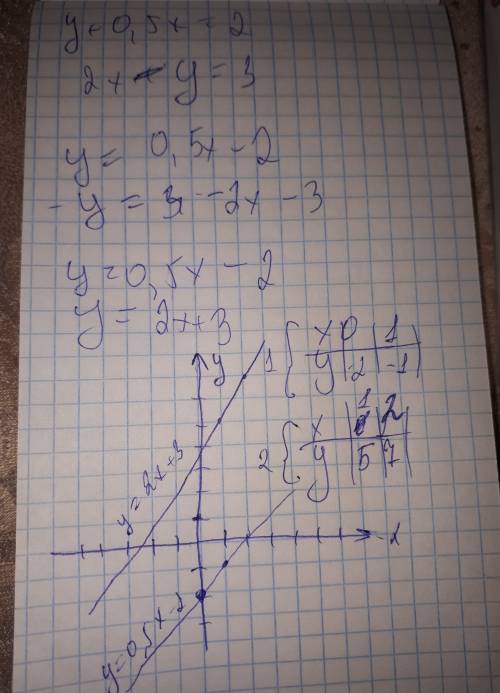 y - 0,5x = 2
2x - y = 3
y = 0,5x - 2
-y = -2x - 3
y = 0,5x - 2
y = 2x + 3
1 { x | 0 | 1
y | -2 | -1
2 { x | 1 | 2
y | 5 | 7
y
y = 2x + 3
x
y = 0,5x - 2